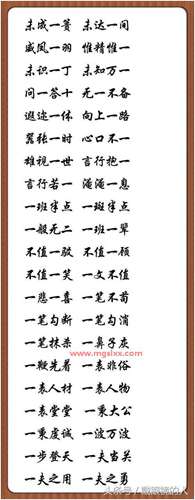 未成一篑 未达一间
威凤一羽 惟精惟一
未识一丁 未知万一
问一答十 无一不备
遐迩一体 向上一路
嚣张一时 心口不一
雄视一世 言行抱一
言行若一 淹淹一息
一班半点 一斑半点
一般无二 一班一辈
不值一驳 不值一顾
不值一笑 一文不值
一悲一喜 一笔不苟
一笔勾断 一笔勾消
一笔抹杀 一鼻子灰
www.mgsixx.com
一鞭先着 一表非俗
一表人材 一表人物
一表堂堂 一秉大公
一秉虔诚 一波万波
一步登天 一夫当关
一夫之用 一夫之勇